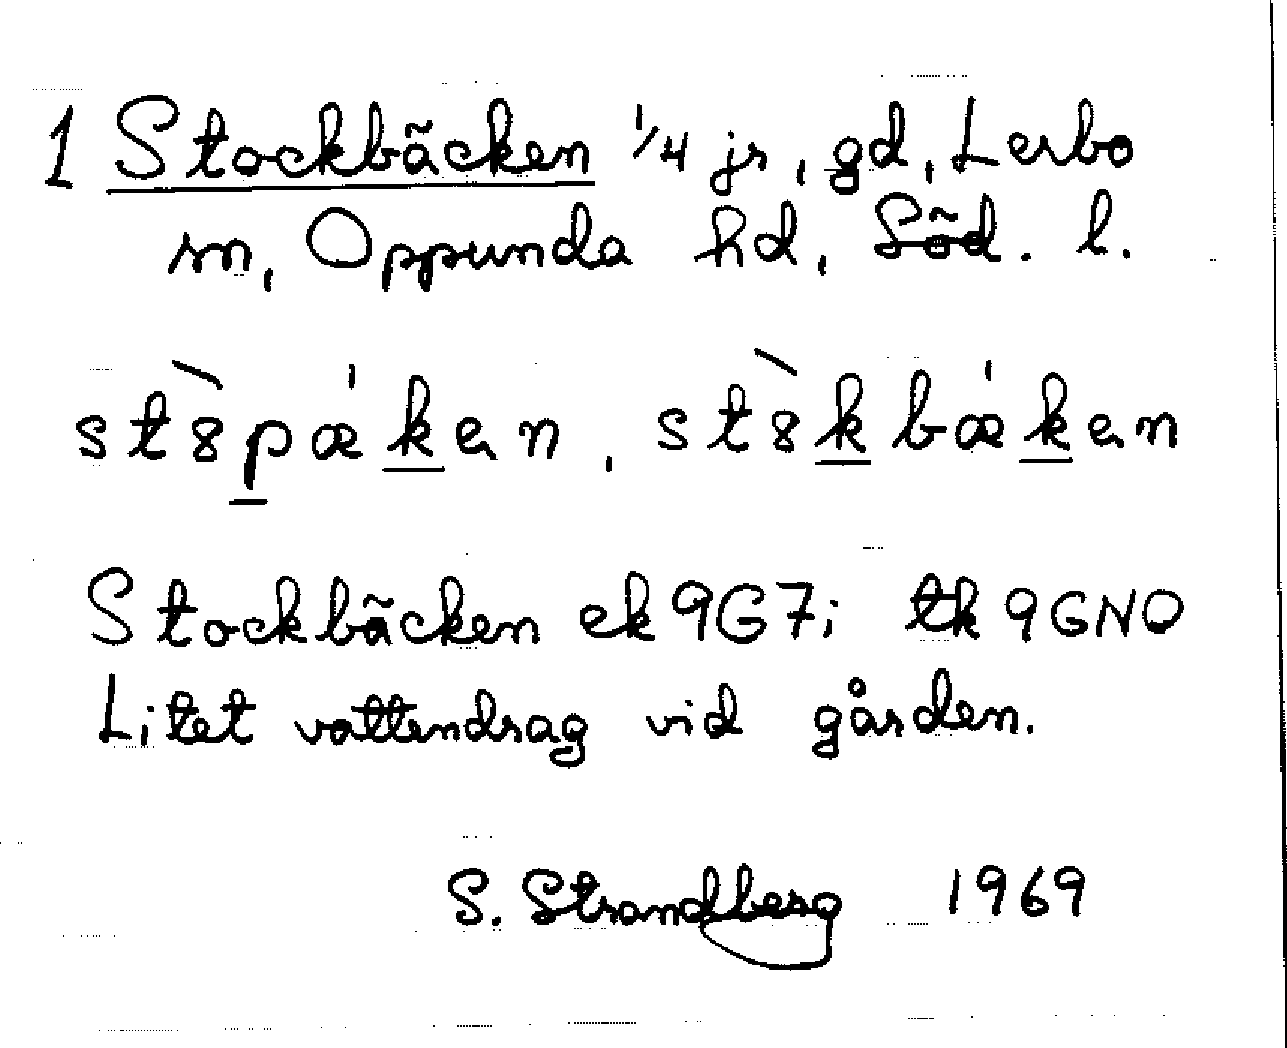 1 Stockbäcken 1/4 jr, gd, Lerbo
sn, Oppunda hd, Söd. l.
st8̀pæ̍ken, st8̀kbæ̍ken
Stockbäcken ek 9G7i tk 9GNO
Litet vattendrag vid gården.
S. Strandberg 1969